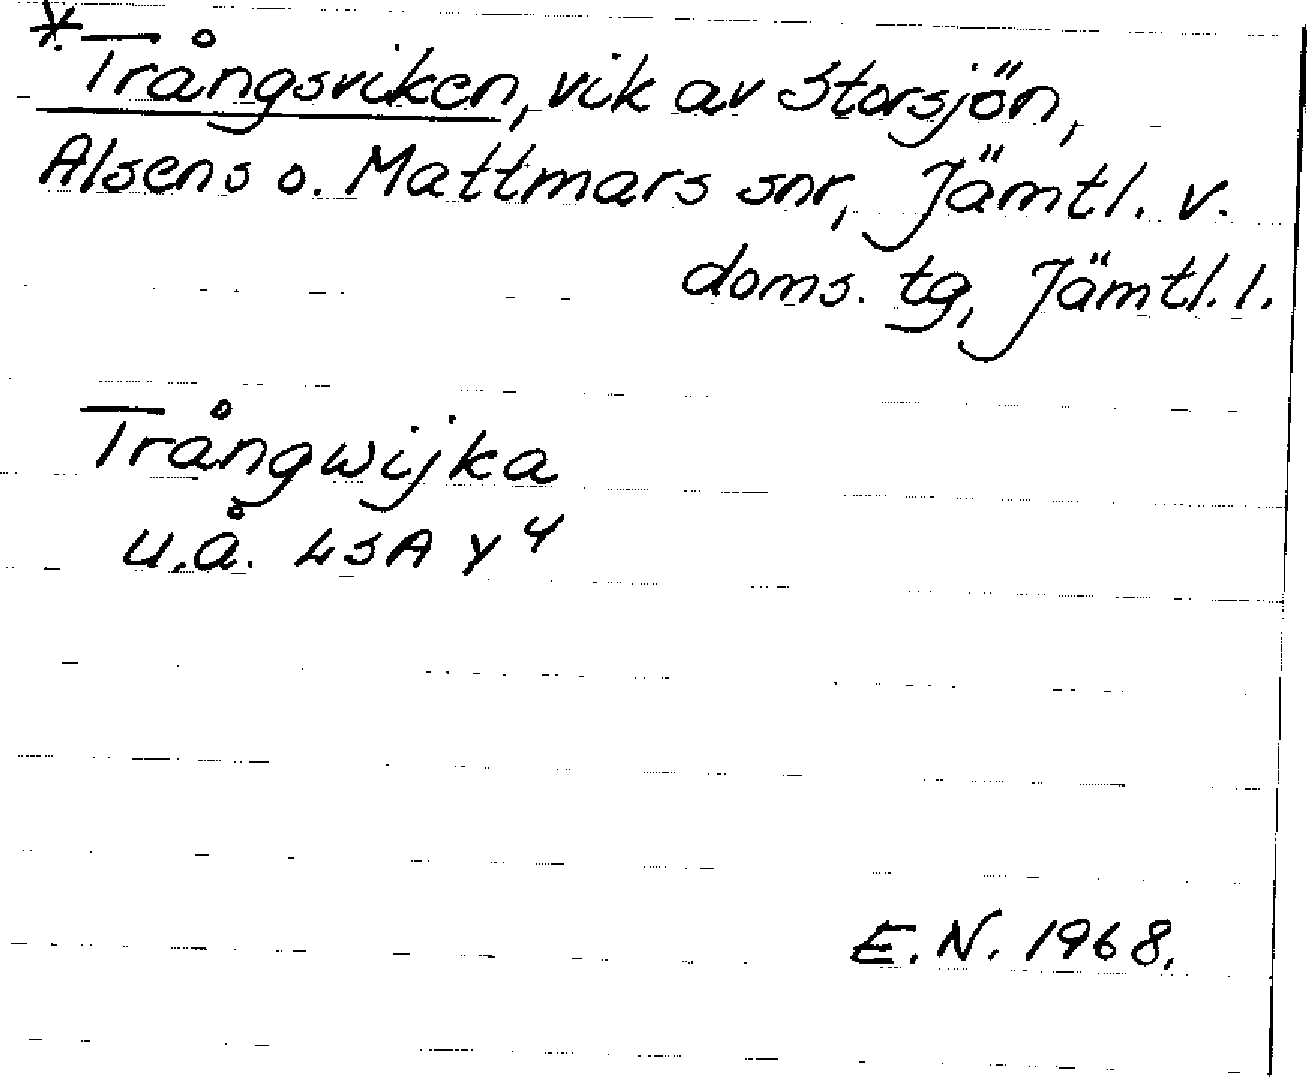 * Trångsviken, vik av Storsjön,
Alsens o. Mattmars snr, Jämtl. v.
doms. tg, Jämtl. l.
Trångwijka
u.å. LSA Y 4
E.N. 1968.